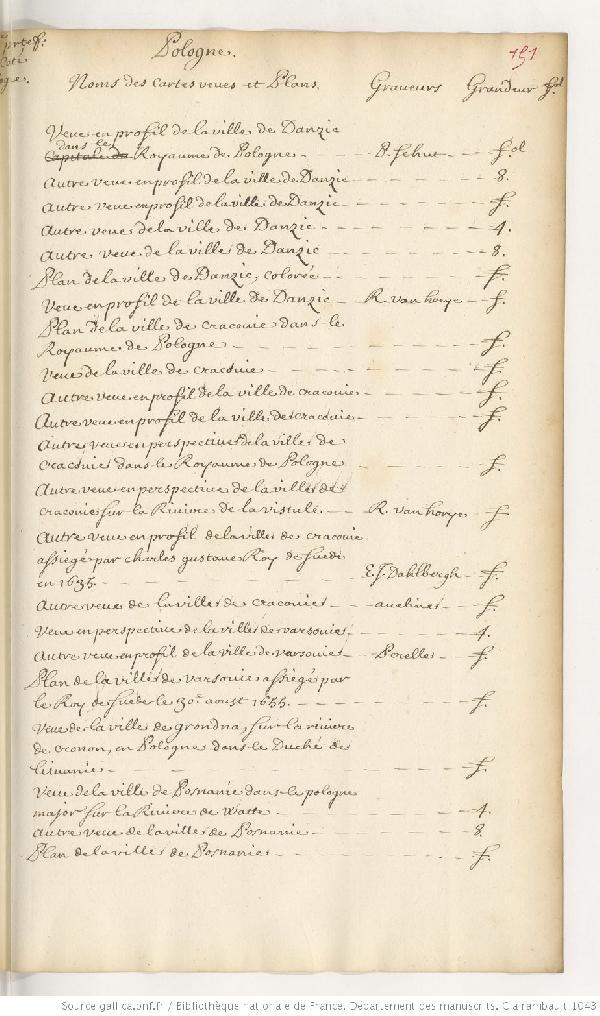 Pologne.
151
Noms des cartes veues et Plans. Graveurs Grandeur fol
Veue en profil de la ville de Danzic
dans le
Capitale du Royaume de Pologne - - - P. Schut - - fol
Autre veue en profil de la ville de Danzic - - - 8.
Autre veue en profil de la ville de Danzic - - - f.
Autre veue de la ville de Danzic - - - 4.
Autre veue de la ville de Danzic - - - 8.
Plan de la ville de Danzic, colorée - - - f.
Veue en profil de la ville de Danzic - R. van horye - f.
Plan de la ville de cracovie dans le
Royaume de Pologne - - - f.
Veue de la ville de cracovie - - - f.
Autre veue en profil de la ville de cracovie - - - f.
Autre veue en profil de la ville de cracovie - - - f.
Autre veue en perspective de la ville de
cracovie dans le Royaume de Pologne - - - f.
Autre veue en perspective de la ville de
cracovie sur la Riviere de la vistule. - - R. van horye - f
Autre veue en profil de la ville de cracovie
assiegé par charles gustave Roy de suede
en 1655. - - - E. J. Dahlbergh - f.
Autre veue de la ville de cracovie - - aveline - f.
Veue en perspective de la ville de varsovie - - - 4.
Autre veue en profil de la ville de varsovie - - Perelle - f.
Plan de la ville de varsovie assiegé par
le Roy de suede le 30e aoust 1655. - - - f.
Veue de la ville de grondna, sur la riviere
de cronon, en Pologne dans le Duché de
lituanie - - - f.
Veue de la ville de Posnanie dans le pologne
major sur la Riviere de Watte - - - 4.
Autre veue de la ville de Posnanie - - - 8.
Plan de la ville de Posnanie - - - f.
Source gallica.bnf.fr / Bibliothèque nationale de France. Département des manuscrits. Clairambault 1043